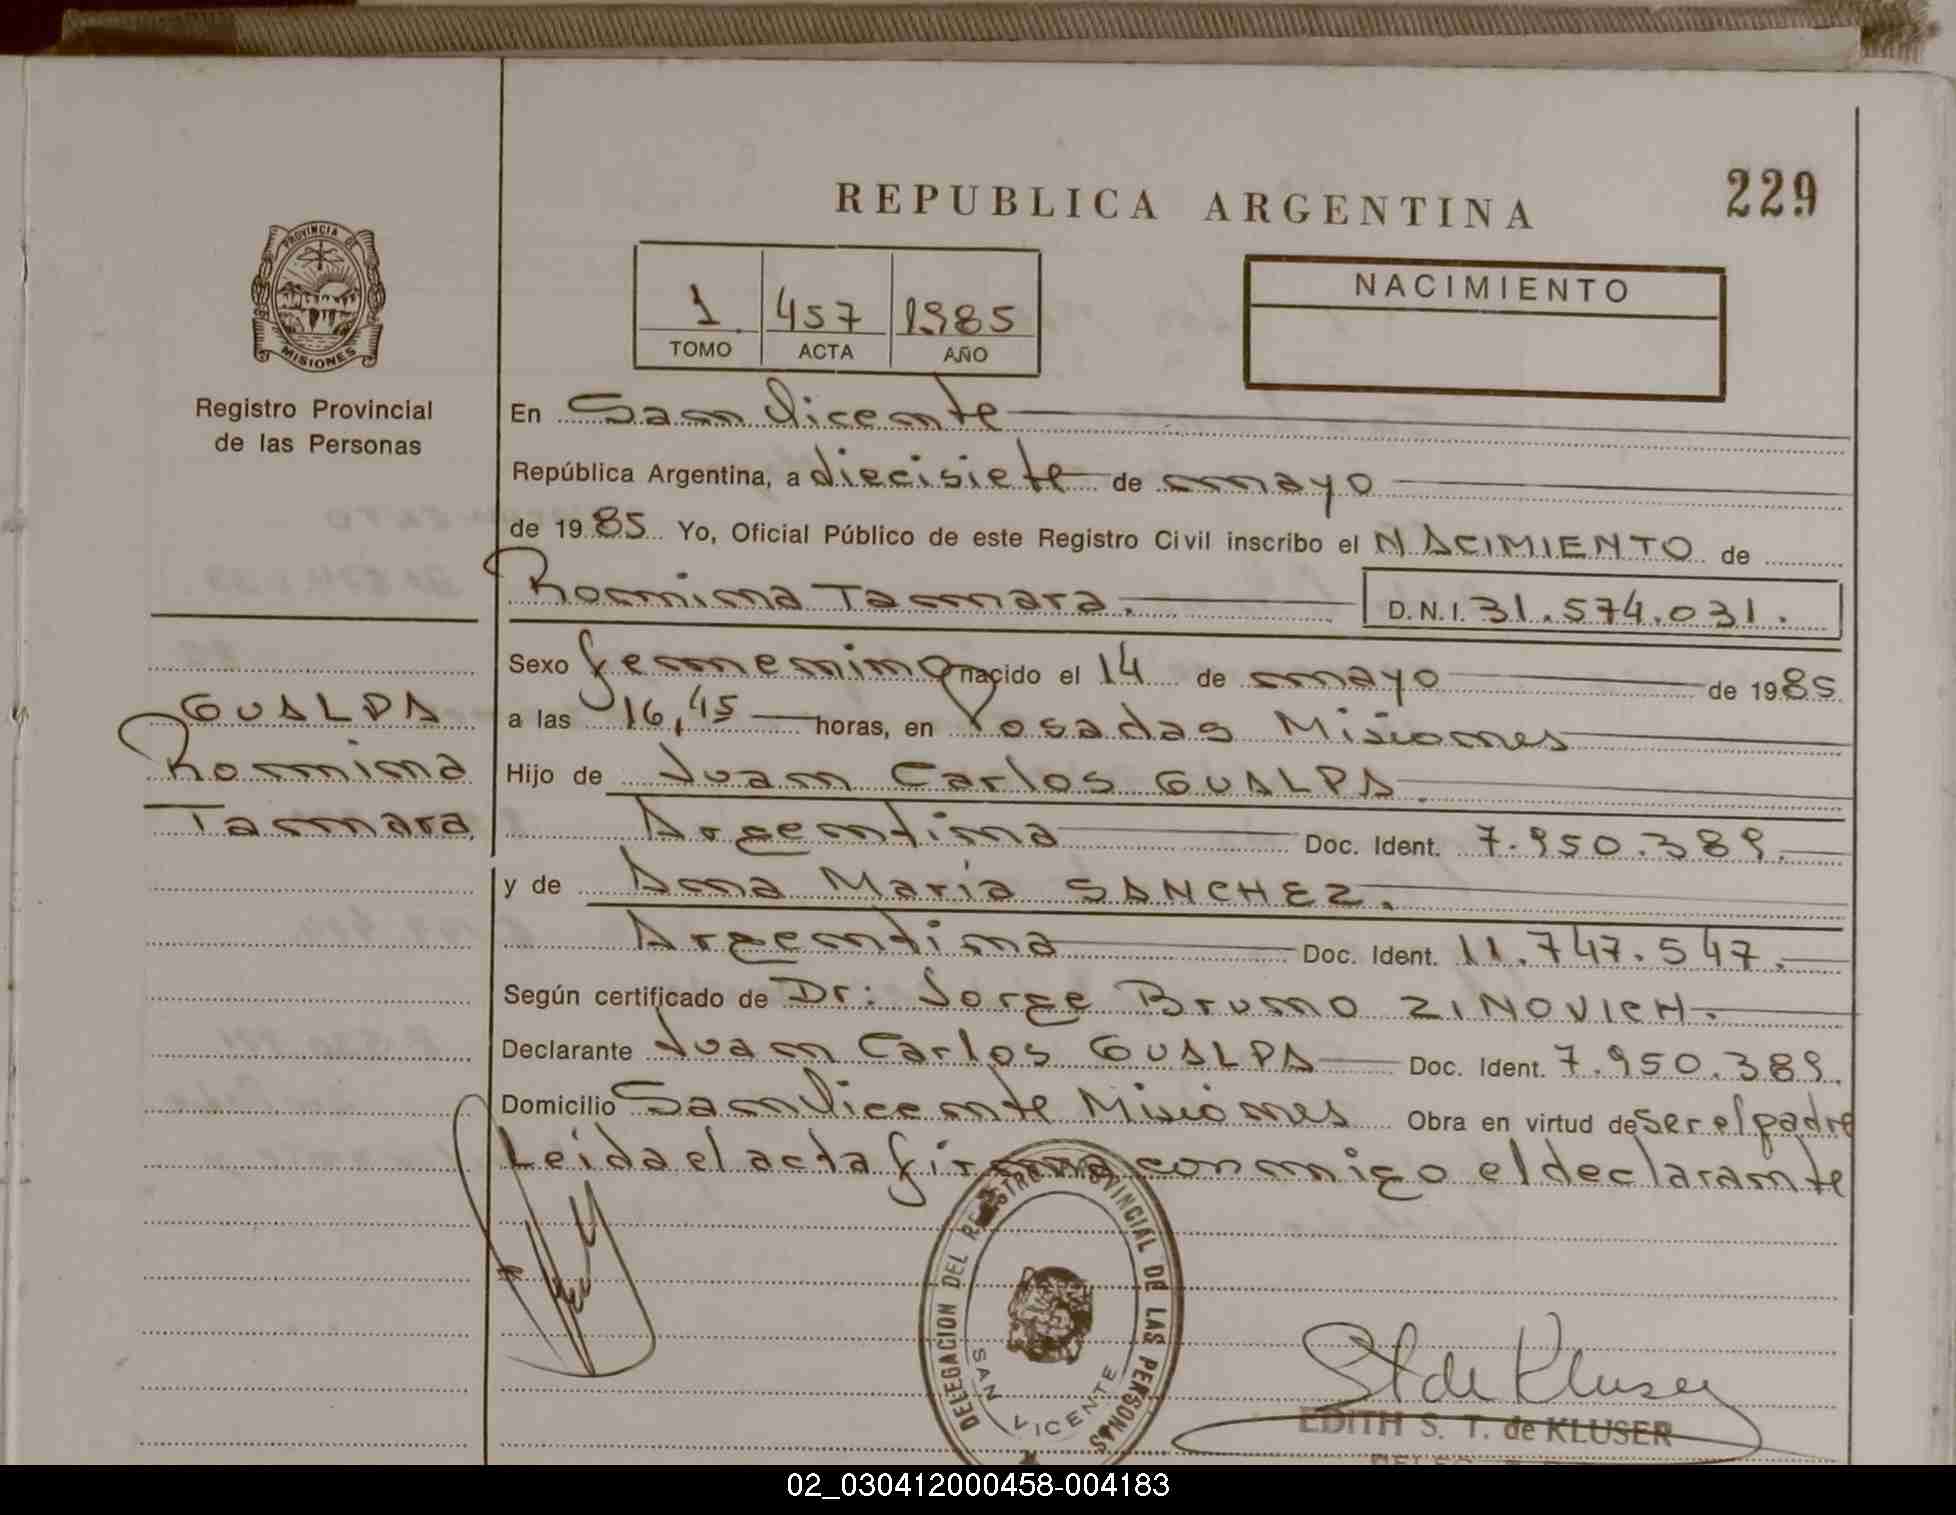 REPUBLICA ARGENTINA
229
PROVINCIA DE
MISIONES
Registro Provincial
de las Personas
1 457 1985
TOMO ACTA AÑO
NACIMIENTO
En San Vicente
República Argentina, a diecisiete de mayo
de 1985 Yo, Oficial Público de este Registro Civil inscribo el NACIMIENTO de
Romina Tamara. D.N.I. 31.574.031.
Sexo femenino nacido el 14 de mayo de 1985
a las 16,45 horas, en Posadas Misiones
Hijo de Juan Carlos GUALPA.
Argentina Doc. Ident. 7.950.389.
y de Ana María SANCHEZ.
Argentina Doc. Ident. 11.747.547.
Según certificado de Dr: Jorge Bruno ZINOVICH.
Declarante Juan Carlos GUALPA Doc. Ident. 7.950.389.
Domicilio San Vicente Misiones Obra en virtud de ser el padre
Leida el acta firma conmigo el declarante
GUALPA
Romina
Tamara.
DELEGACION DEL REGISTRO PROVINCIAL DE LAS PERSONAS
SAN VICENTE
St de Kluser
EDITH S. T. de KLUSER
02_030412000458-004183